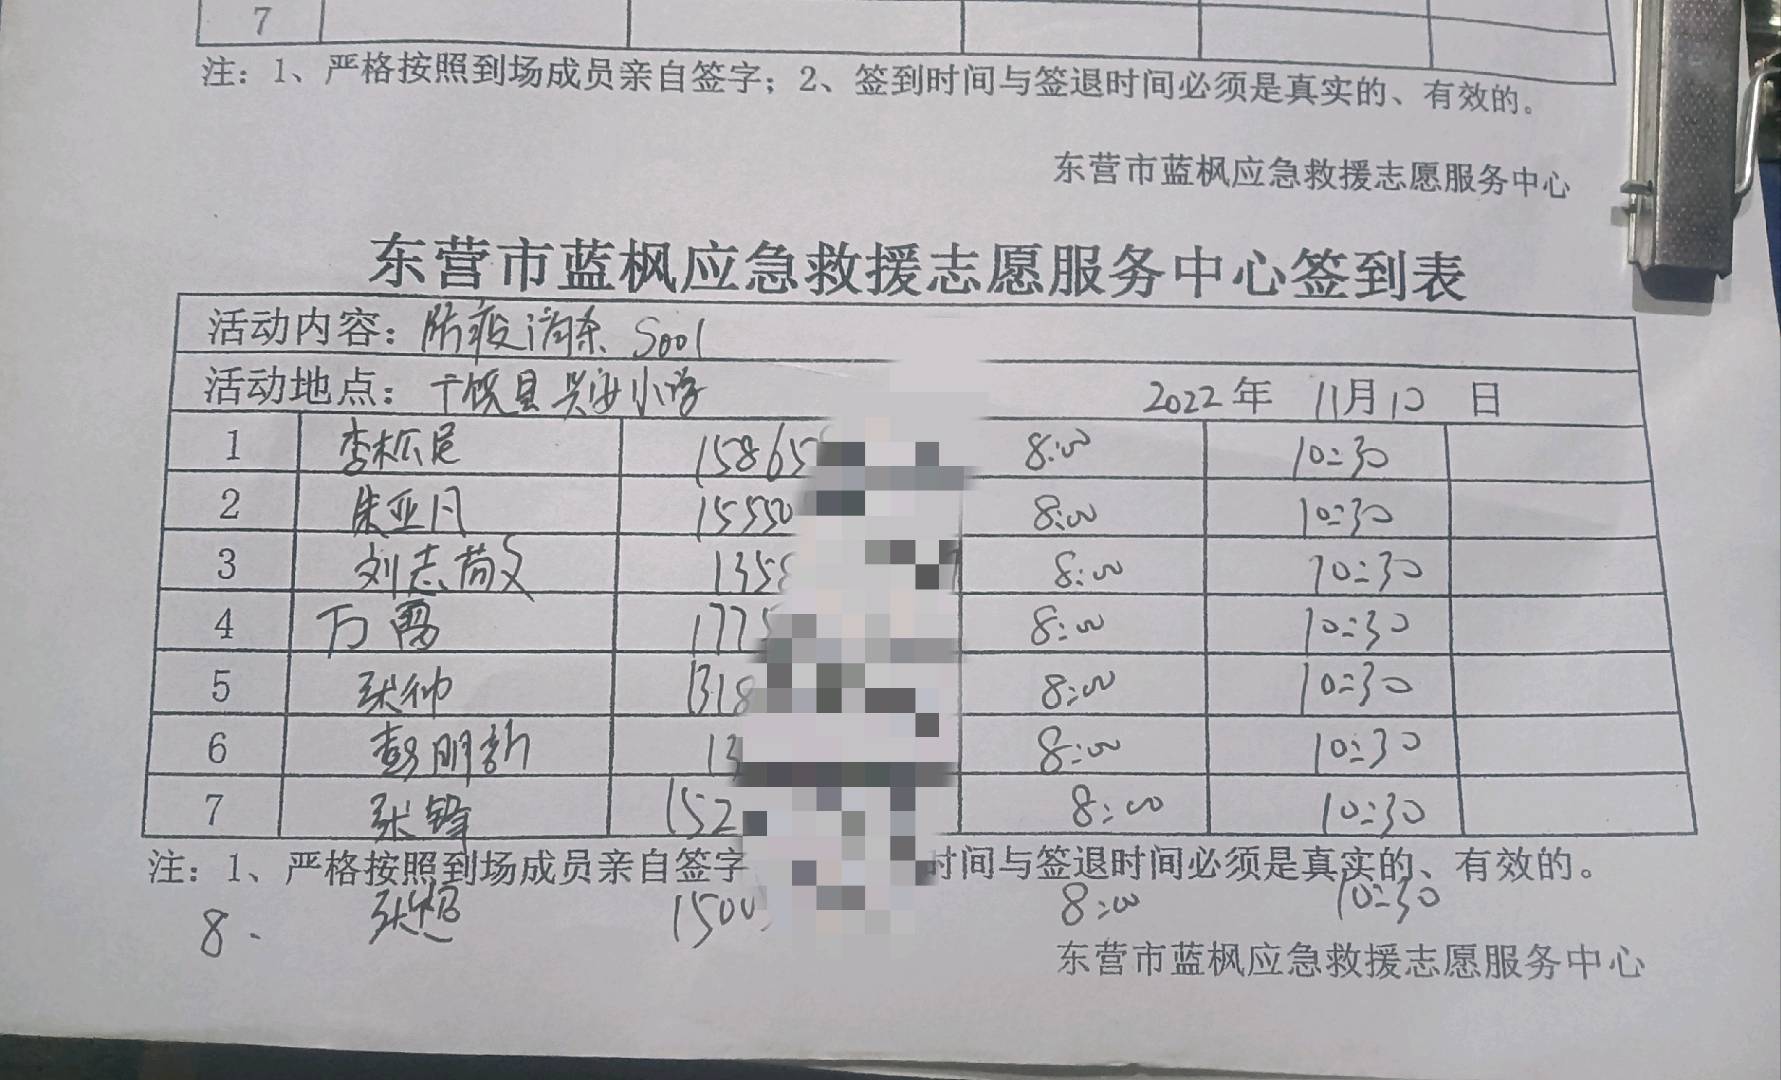 7
注：1、严格按照到场成员亲自签字；2、签到时间与签退时间必须是真实的、有效的。
东营市蓝枫应急救援志愿服务中心
东营市蓝枫应急救援志愿服务中心签到表
活动内容：防疫消杀 5001
活动地点： 县兴安小学 2022年 11月10日
1 李 15865 8:00 10:30
2 朱亚凡 15550 8:00 10:30
3 刘志 1358 8:00 10:30
4 万雷 1775 8:00 10:30
5 张帅 1318 8:00 10:30
6 彭明新 13 8:00 10:30
7 张锋 152 8:00 10:30
注：1、严格按照到场成员亲自签字 时间与签退时间必须是真实的、有效的。
8. 张 1500 8:00 10:30
东营市蓝枫应急救援志愿服务中心